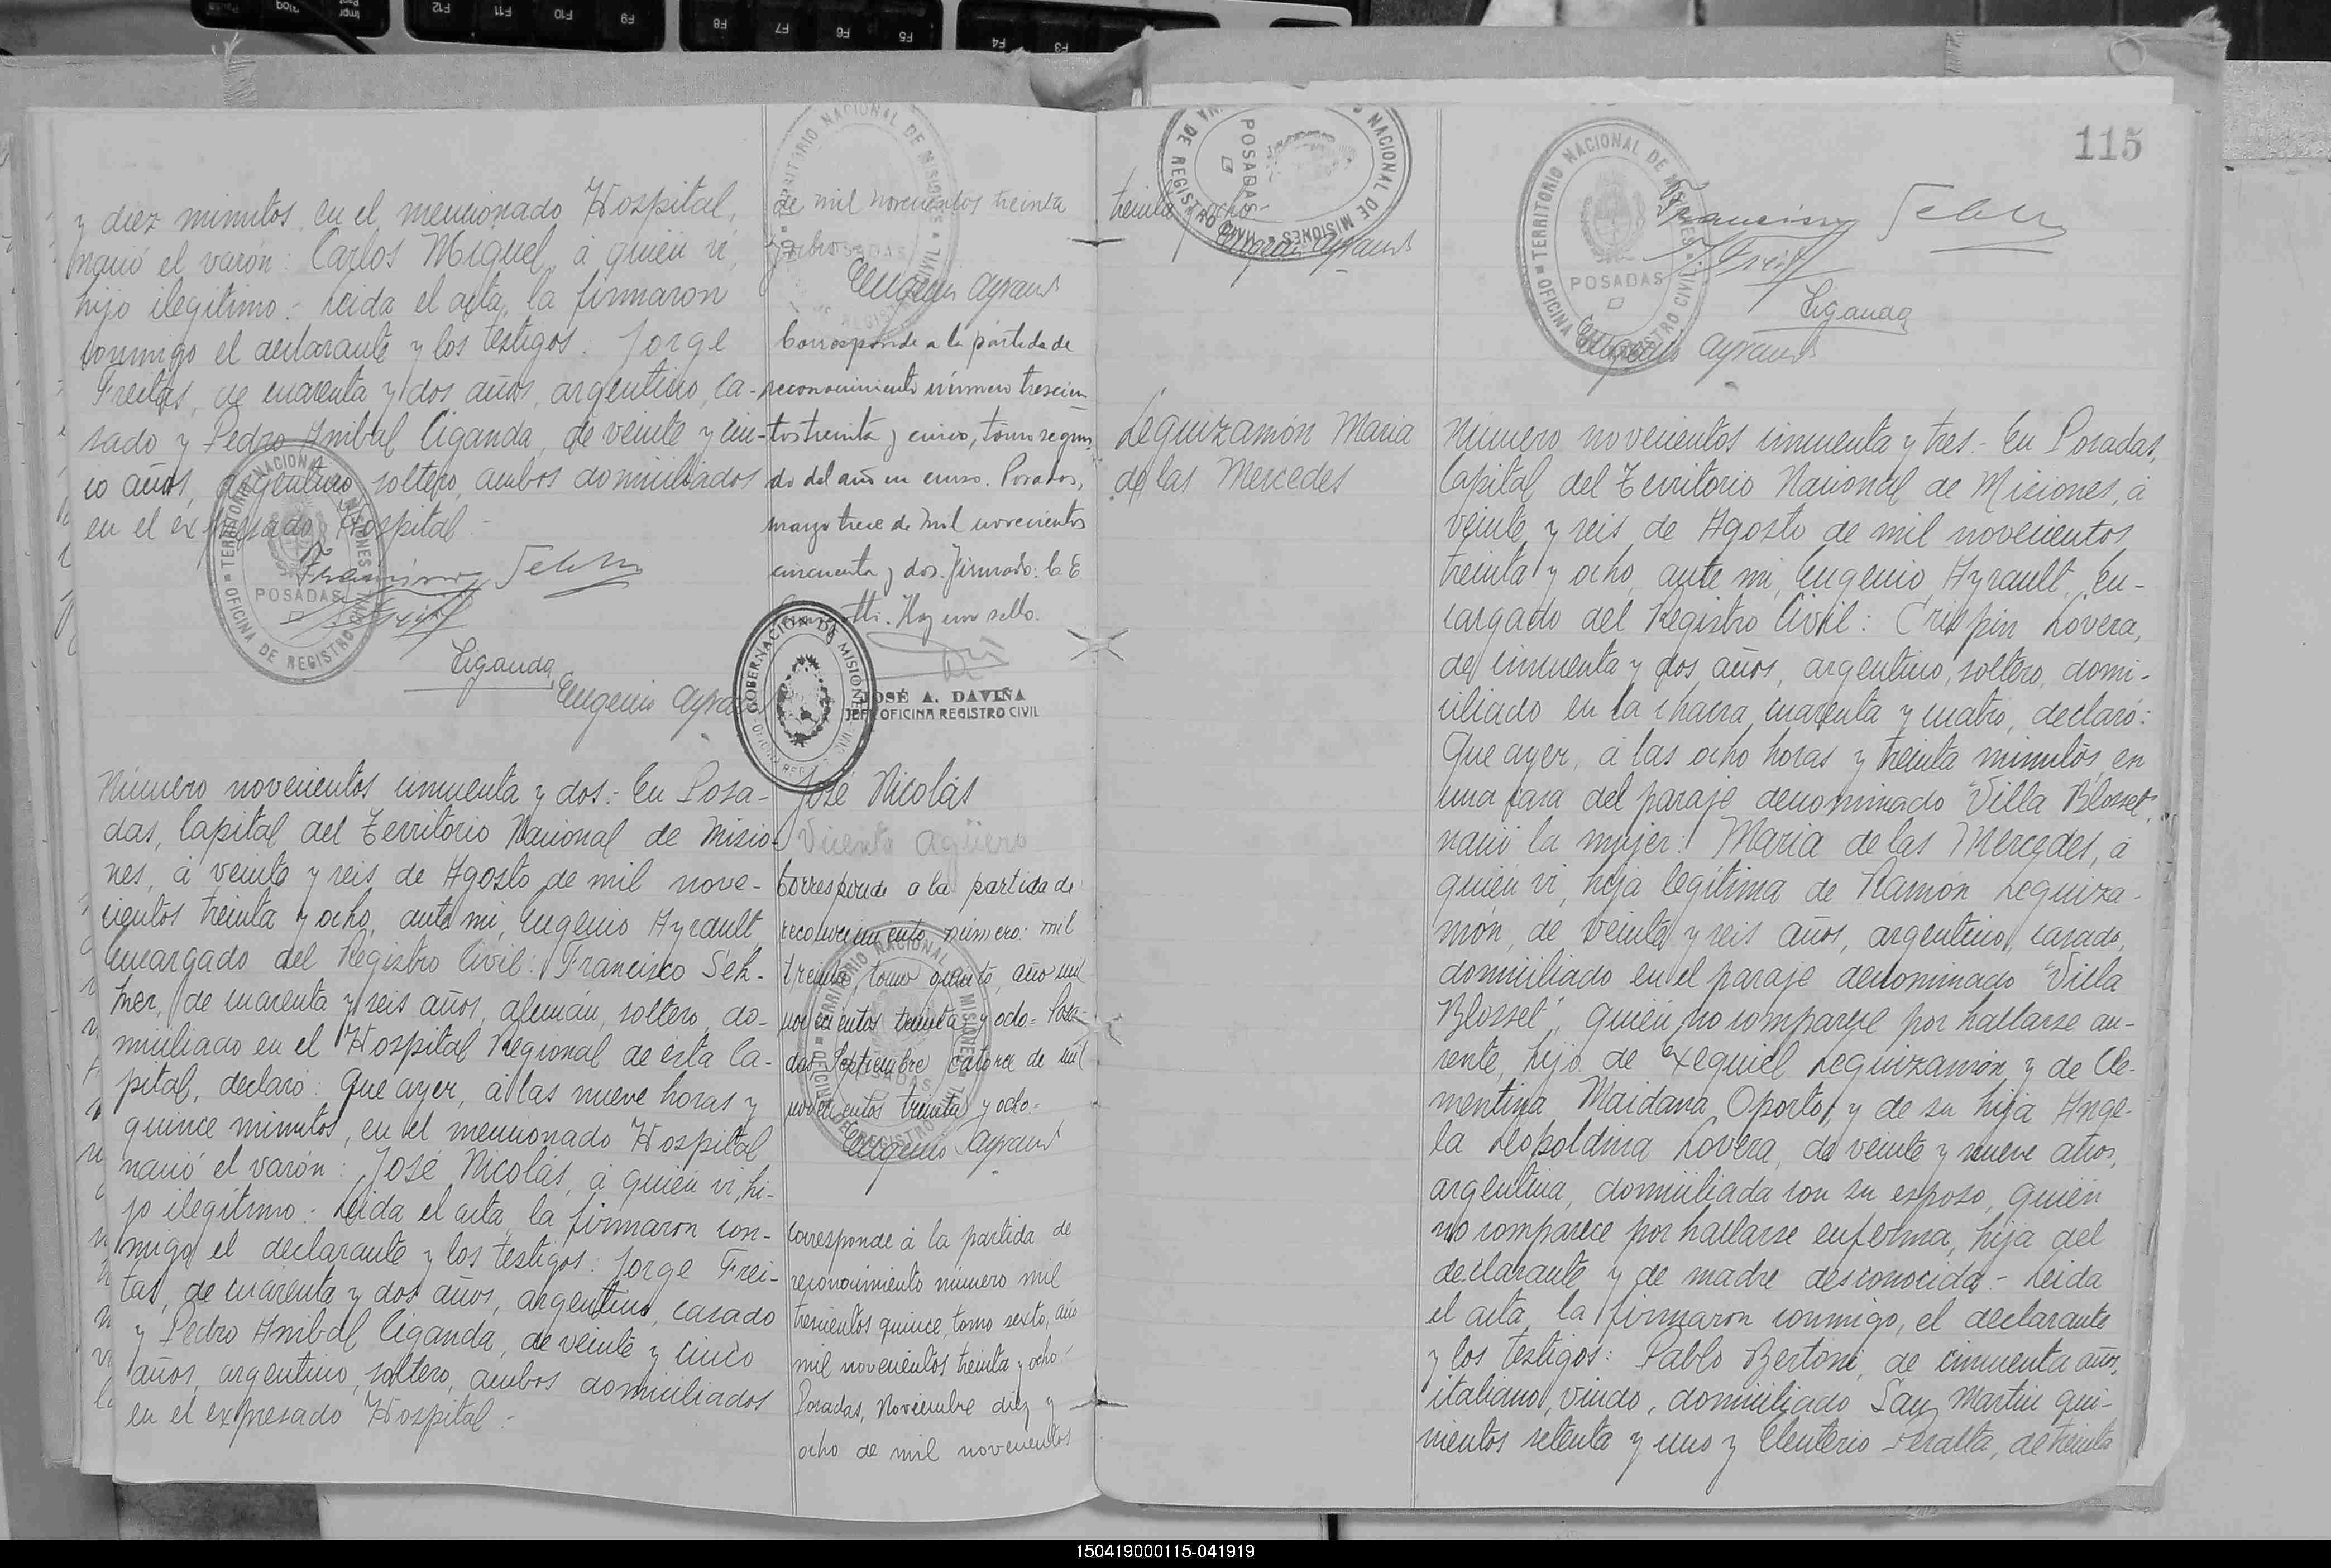 y diez minutos, en el mencionado Hospital,
nació el varón: Carlos Miguel, á quién ví,
hijo ilegítimo.- Leida el acta, la firmaron
conmigo el declarante y los testigos: Jorge
Freitas, de cuarenta y dos años, argentino, ca-
sado y Pedro Anibal Ciganda, de veinte y cin-
co años, argentino, soltero, ambos domiciliados
en el expresado Hospital.-
Ciganda
Eugenio Ayrault
TERRITORIO NACIONAL DE MISIONES
POSADAS
OFICINA DE REGISTRO CIVIL
de mil novecientos treinta
y ocho.
Eugenio Ayrault
Corresponde a la partida de
reconocimiento número trescien
tos treinta y cinco, tomo segun
do del año en curso. Posadas,
marzo trece de mil novecientos
cincuenta y dos. Firmado: C. E.
Hay un sello.
GOBERNACION DE MISIONES
JOSÉ A. DAVIÑA
JEFE OFICINA REGISTRO CIVIL
Número novecientos cincuenta y dos.- En Posa-
das, Capital del Territorio Nacional de Misio-
nes, á veinte y seis de Agosto de mil nove-
cientos treinta y ocho, ante mí, Eugenio Ayrault,
Encargado del Registro Civil: Francisco Seh-
mer, de cuarenta y seis años, alemán, soltero, do-
miciliado en el Hospital Regional de esta Ca-
pital, declaró: Que ayer, á las nueve horas y
quince minutos, en el mencionado Hospital
nació el varón: José Nicolás, á quién ví, hi-
jo ilegítimo.- Leida el acta, la firmaron con-
migo el declarante y los testigos: Jorge Frei-
tas, de cuarenta y dos años, argentino, casado
y Pedro Anibal Ciganda, de veinte y cinco
años, argentino, soltero, ambos domiciliados
en el expresado Hospital.-
José Nicolás
Vicente Agüero
Corresponde a la partida de
reconocimiento número: mil
treinta, tomo quinto, año mil
novecientos treinta y ocho= Posa-
das, Septiembre catorce de mil
novecientos treinta y ocho=
Eugenio Ayrault
Corresponde á la partida de
reconocimiento número mil
trescientos quince, tomo sexto, año
mil novecientos treinta y ocho.-
Posadas, Noviembre diez y
ocho de mil novecientos
treinta y ocho.-
Eugenio Ayrault
NACIONAL DE MISIONES
POSADAS
115
TERRITORIO NACIONAL DE MISIONES
POSADAS
OFICINA DE REGISTRO CIVIL
Francisco Sehmer
Ciganda
Eugenio Ayrault
Leguizamón Maria
de las Mercedes
Número novecientos cincuenta y tres.- En Posadas,
Capital del Territorio Nacional de Misiones, á
veinte y seis de Agosto de mil novecientos
treinta y ocho, ante mí, Eugenio Ayrault, En-
cargado del Registro Civil: Crispin Lovera,
de cincuenta y dos años, argentino, soltero, domi-
ciliado en la chacra cuarenta y cuatro, declaró:
Que ayer, á las ocho horas y treinta minutos, en
una casa del paraje denominado "Villa Blosset",
nació la mujer: Maria de las Mercedes, á
quién ví, hija legítima de Ramón Leguiza-
món, de veinte y seis años, argentino, casado,
domiciliado en el paraje denominado "Villa
Blosset", quién no comparece por hallarse au-
sente, hijo de Exequiel Leguizamón y de Cle-
mentina Maidana Oporto, y de su hija Ange-
la Leopoldina Lovera, de veinte y nueve años,
argentina, domiciliada con su esposo, quién
no comparece por hallarse enferma, hija del
declarante y de madre desconocida.- Leida
el acta, la firmaron conmigo, el declarante
y los testigos: Pablo Bertoni, de cincuenta años,
italiano, viudo, domiciliado San Martin qui-
nientos setenta y uno y Eleuterio Peralta, de treinta
150419000115-041919